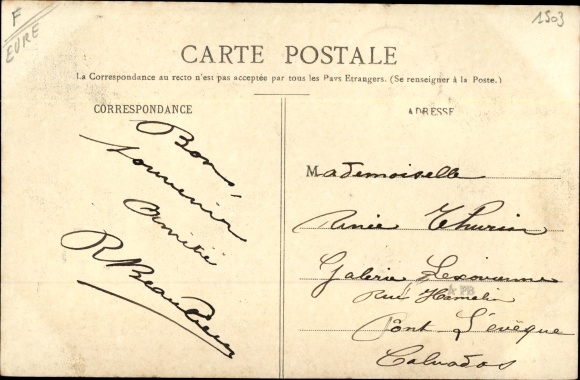 F
EURE
1503
CARTE POSTALE
La Correspondance au recto n'est pas acceptée par tous les Pays Etrangers. (Se renseigner à la Poste.)
CORRESPONDANCE
Bon
souvenir
Amitié
R Beaudieu
ADRESSE
Mademoiselle
Renée Thurin
Galerie Lexovienne
Rue Hamelin
Pônt L'évêque
Calvados